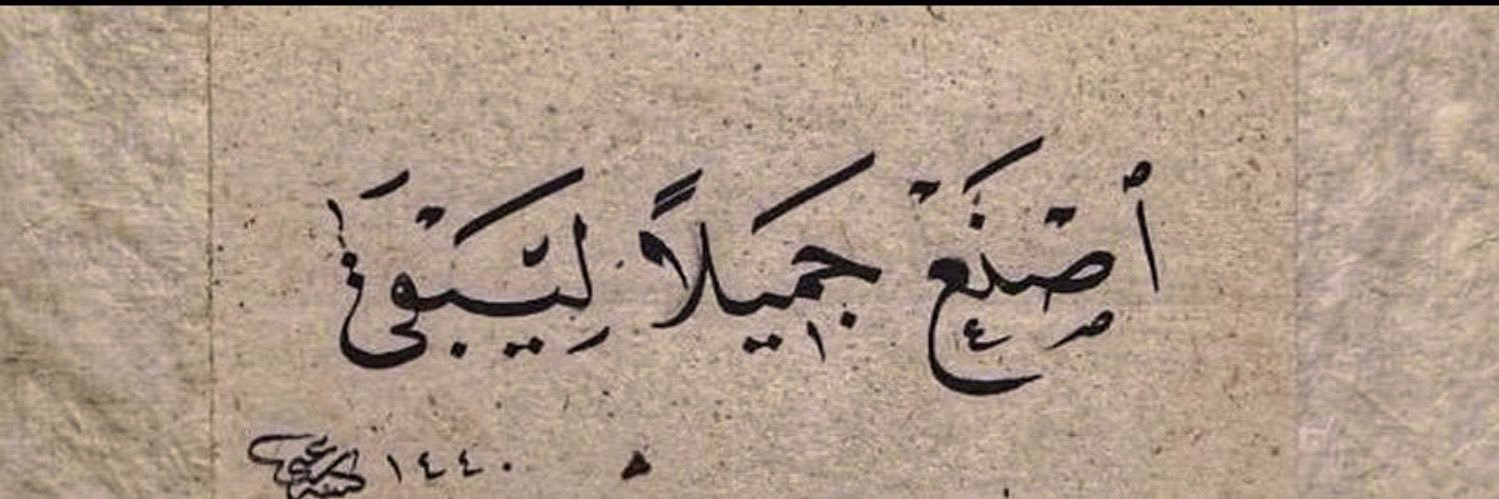 ٱصْنَعْ جَمِيلاً لِيَبْقَىٰ
١٤٤٠